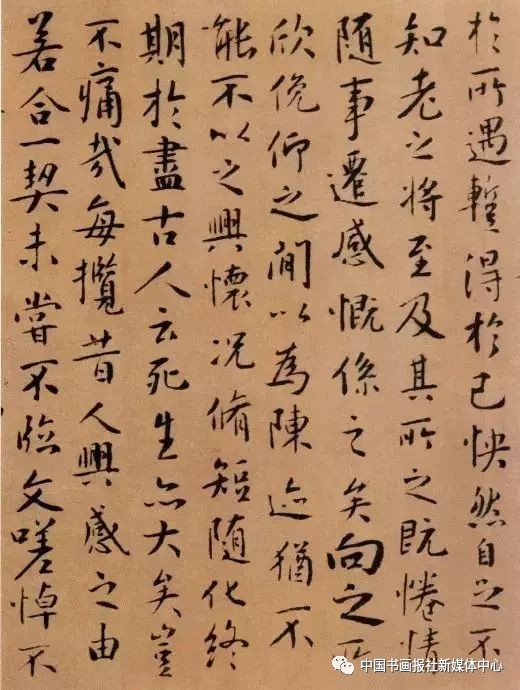 於所遇蹔得於己怏然自足不
知老之將至及其所之既惓情
随事遷感慨係之矣向之所
欣俛仰之閒以為陳迹猶不
能不以之興懷况脩短随化終
期於盡古人云死生亦大矣豈
不痛哉每攬昔人興感之由
若合一契未嘗不临文嗟悼不
中国书画报社新媒体中心